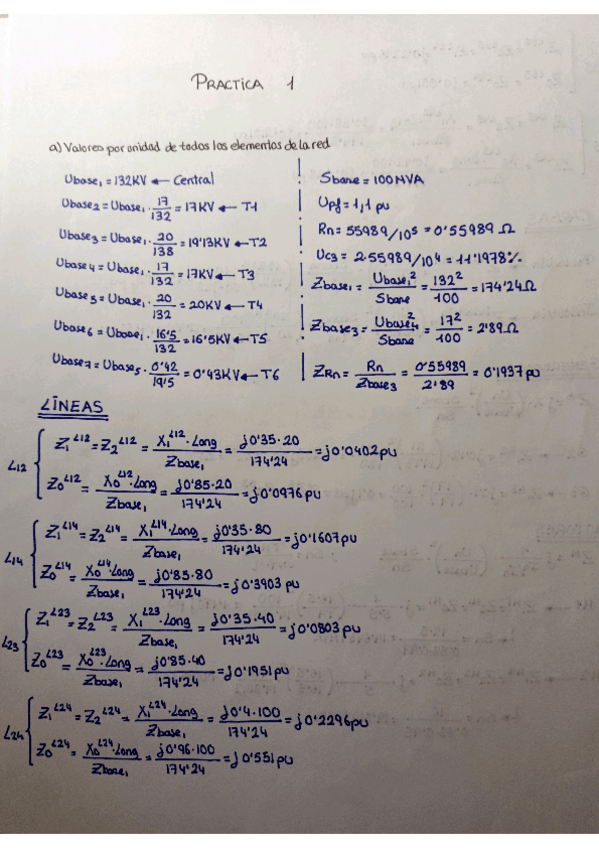 PRACTICA 1
a) Valores por unidad de todos los elementos de la red
Ubase₁ = 132KV ← Central
Ubase₂ = Ubase₁ · 17/132 = 17KV ← T1
Ubase₃ = Ubase₁ · 20/138 = 19'13KV ← T2
Ubase₄ = Ubase₁ · 17/132 = 17KV ← T3
Ubase₅ = Ubase₁ · 20/132 = 20KV ← T4
Ubase₆ = Ubase₁ · 16'5/132 = 16'5KV ← T5
Ubase₇ = Ubase₅ · 0'42/19'5 = 0'43KV ← T6
Sbase = 100MVA
Upf = 1,1 pu
Rn = 55989/10⁵ = 0'55989 Ω
Uc₃ = 2·55989/10⁴ = 11'1978%
Zbase₁ = Ubase₁²/Sbase = 132²/100 = 174'24Ω
Zbase₃ = Ubase₄²/Sbase = 17²/100 = 2'89Ω
ZRn = Rn/Zbase₃ = 0'55989/2'89 = 0'1937 pu
LÍNEAS
L12
Z₁ᴸ¹² = Z₂ᴸ¹² = X₁ᴸ¹²·Long/Zbase₁ = j0'35·20/174'24 = j0'0402pu
Z₀ᴸ¹² = X₀ᴸ¹²·Long/Zbase₁ = j0'85·20/174'24 = j0'0976 pu
L14
Z₁ᴸ¹⁴ = Z₂ᴸ¹⁴ = X₁ᴸ¹⁴·Long/Zbase₁ = j0'35·80/174'24 = j0'1607pu
Z₀ᴸ¹⁴ = X₀ᴸ¹⁴·Long/Zbase₁ = j0'85·80/174'24 = j0'3903 pu
L23
Z₁ᴸ²³ = Z₂ᴸ²³ = X₁ᴸ²³·Long/Zbase₁ = j0'35·40/174'24 = j0'0803pu
Z₀ᴸ²³ = X₀ᴸ²³·Long/Zbase₁ = j0'85·40/174'24 = j0'1951pu
L24
Z₁ᴸ²⁴ = Z₂ᴸ²⁴ = X₁ᴸ²⁴·Long/Zbase₁ = j0'4·100/174'24 = j0'2296pu
Z₀ᴸ²⁴ = X₀ᴸ²⁴·Long/Zbase₁ = j0'96·100/174'24 = j0'551pu